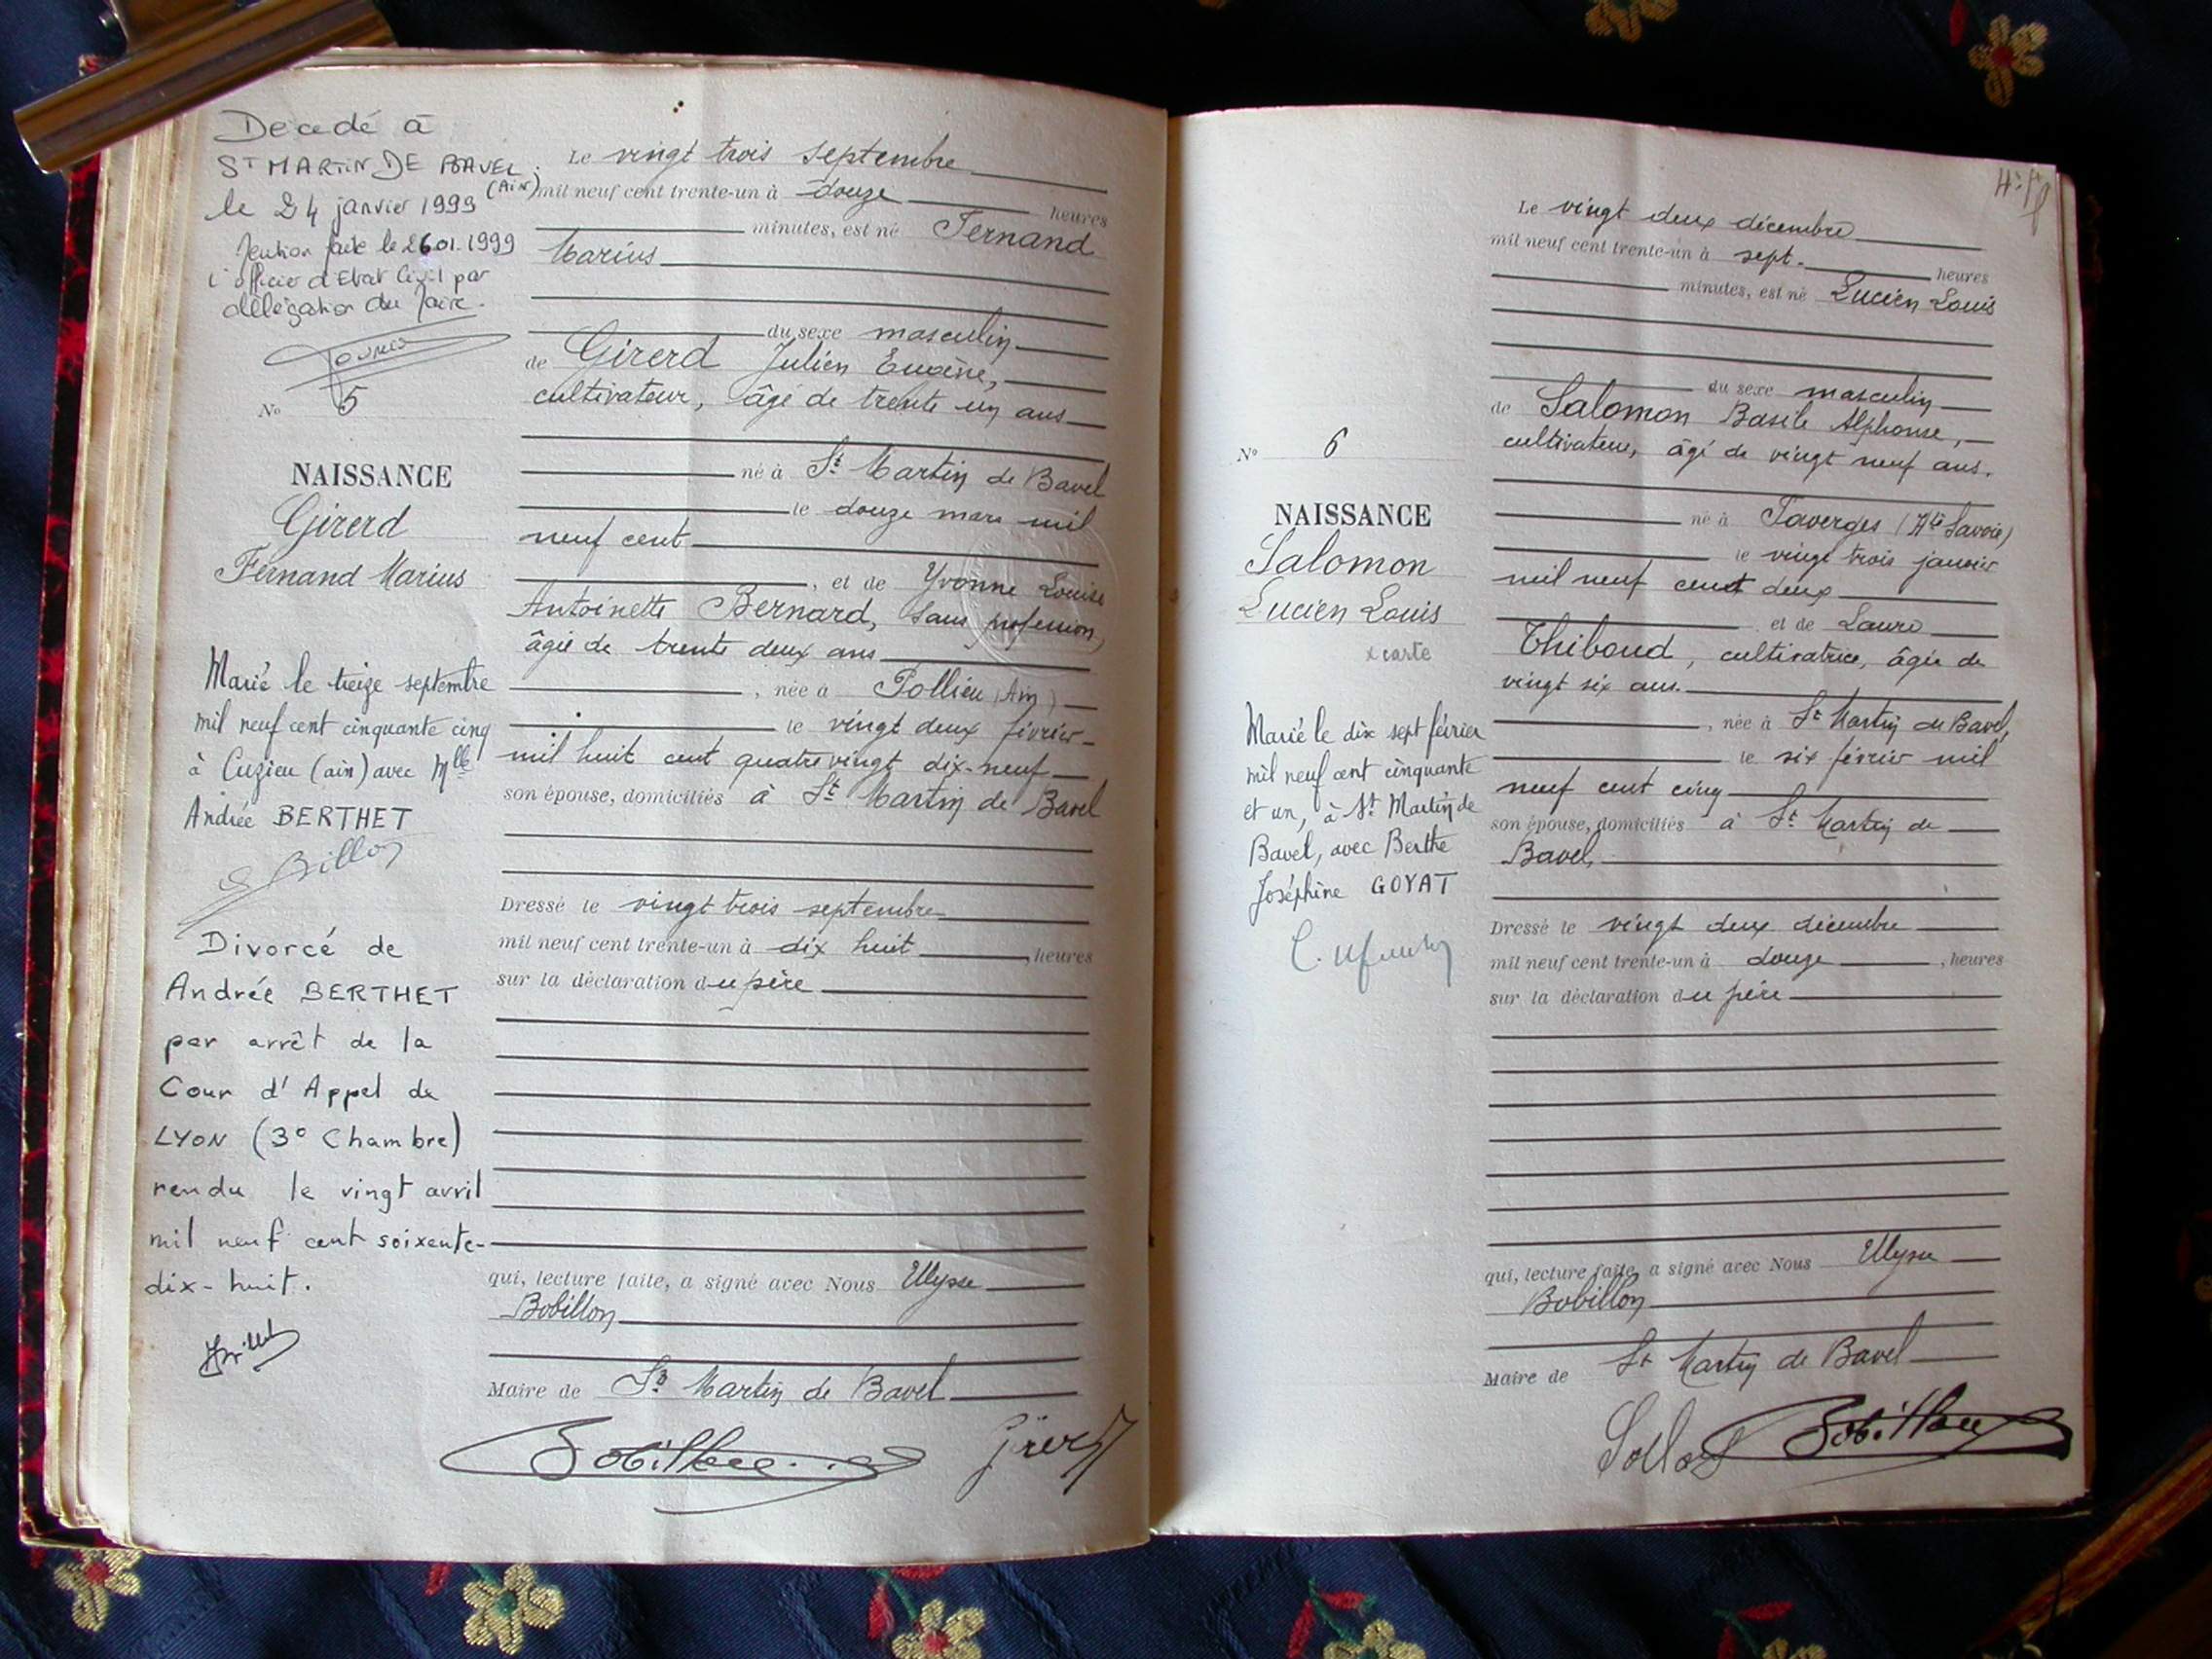 Décédé à
ST MARTIN DE BAVEL
(Ain)
le 24 janvier 1999
Mention faite le 26 01. 1999
L'officier d'Etat Civil par
délégation du Maire.
No 5
NAISSANCE
Girerd
Fernand Marius
Marié le treize septembre
mil neuf cent cinquante cinq
à Cuzieu (ain) avec Mlle
Andrée BERTHET
Divorcé de
Andrée BERTHET
par arrêt de la
Cour d'Appel de
LYON (3° Chambre)
rendu le vingt avril
mil neuf cent soixante-
dix-huit.
Le vingt trois septembre
mil neuf cent trente-un à douze heures
minutes, est né Fernand
Marius
du sexe masculin
de Girerd Julien Eugène,
cultivateur, âgé de trente un ans
né à St Martin de Bavel
le douze mars mil
neuf cent
, et de Yvonne Louise
Antoinette Bernard, sans profession,
âgée de trente deux ans
, née à Pollieu (Ain)
le vingt deux février
mil huit cent quatre vingt dix-neuf
son épouse, domiciliés à St Martin de Bavel
Dressé le vingt trois septembre
mil neuf cent trente-un à dix huit , heures
sur la déclaration du père
qui, lecture faite, a signé avec Nous Ulysse
Bobillon
Maire de St Martin de Bavel
Bobillon
Girerd
No 6
NAISSANCE
Salomon
Lucien Louis
x carte
Marié le dix sept février
mil neuf cent cinquante
et un, à St Martin de
Bavel, avec Berthe
Joséphine GOYAT
Le vingt deux décembre
mil neuf cent trente-un à sept. heures
minutes, est né Lucien Louis
du sexe masculin
de Salomon Basile Alphonse,
cultivateur, âgé de vingt neuf ans.
né à Faverges (Hte Savoie)
le vingt trois janvier
mil neuf cent deux
et de Laure
Thiboud, cultivatrice, âgée de
vingt six ans.
, née à St Martin de Bavel,
le six février mil
neuf cent cinq
son épouse, domiciliés à St Martin de
Bavel,
Dressé le vingt deux décembre
mil neuf cent trente-un à douze , heures
sur la déclaration du père
qui, lecture faite, a signé avec Nous Ulysse
Bobillon
Maire de St Martin de Bavel
Bobillon